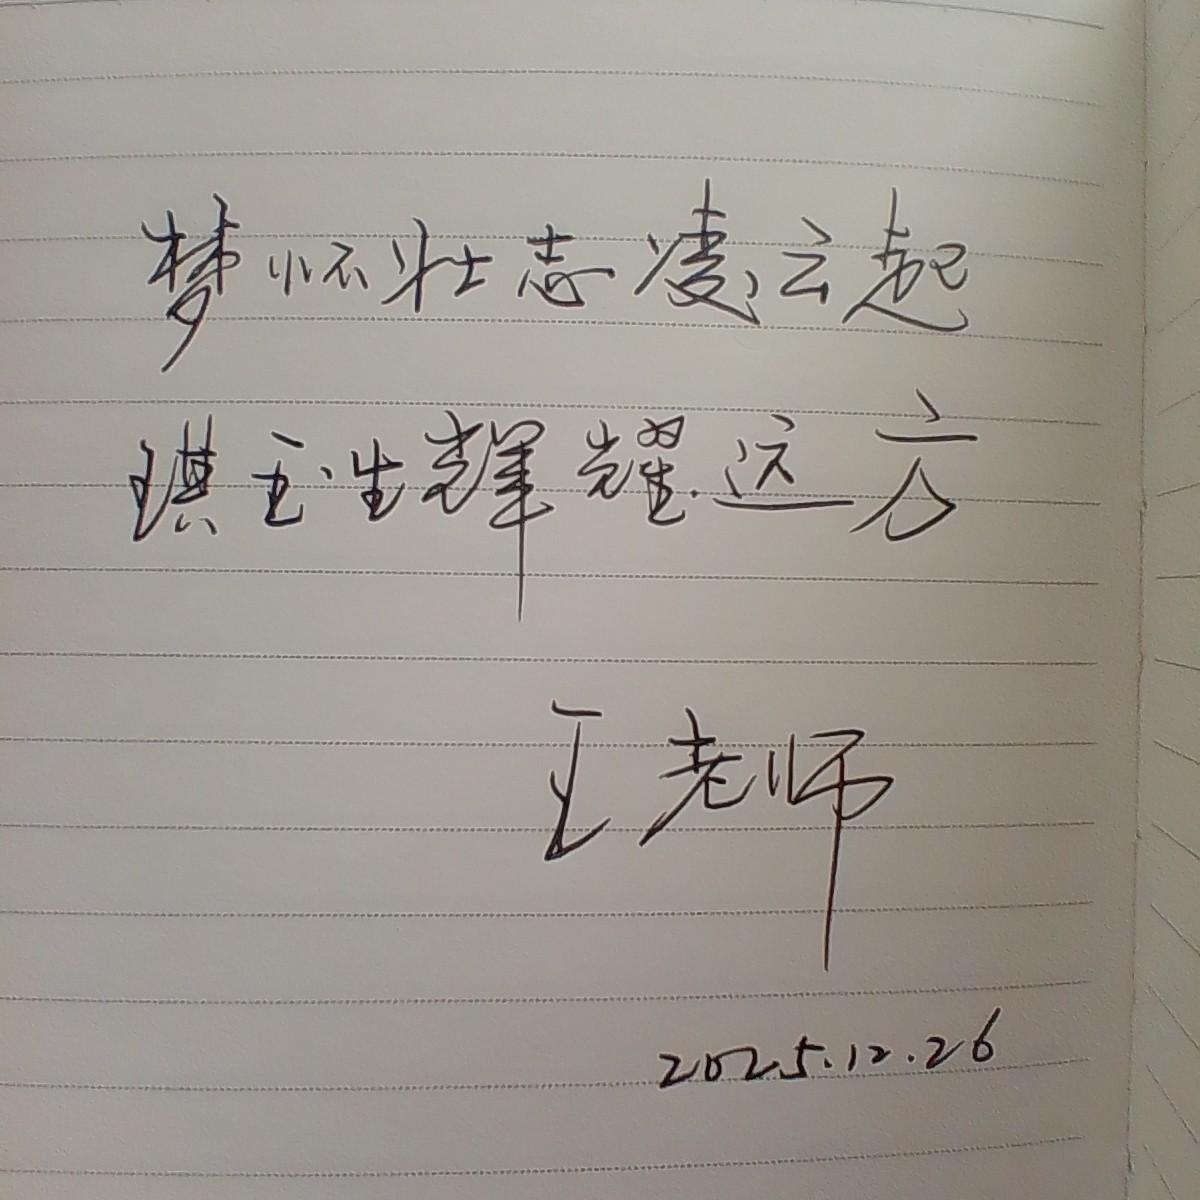 梦怀壮志凌云起
琪玉生辉耀远方
王老师
2025.12.26